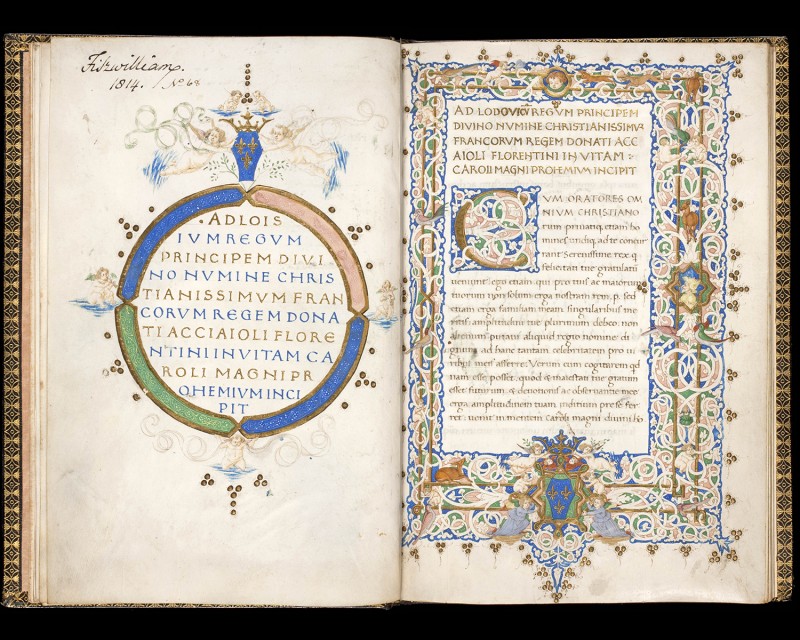 Fitzwilliam.
1814. No 68
. AD LOIS
IVM REGVM
PRINCIPEM DIVI
NO NUMINE CHRIS
TIANISSIMVM FRAN
CORVM REGEM DONA
TI ACCIAIOLI FLORE
NTINI IN VITAM CA
ROLI MAGNI PR
OHEMIVM INCI
PIT
AD LODOVICV REGVM PRINCIPEM
DIVINO NVMINE CHRISTIANISSIMV
FRANCORVM REGEM DONATI ACC
AIOLI FLORENTINI IN VITAM :
CAROLI MAGNI PROHEMIVM INCIPIT
CVM ORATORES OM
NIVM CHRISTIANO
rum priuatiq. etiam ho
mines undiq. ad te concur
rant Serenissime rex &
felicitati tue gratulati
ueniunt: ego etiam qui pro tuis ac maiorum
tuorum non solum erga nostram rem. p. sed
etiam erga familiam meam singularibus me
ritis amplitudini tue plurimum debeo. non
alienum putaui aliquid regio nomine di
gnum. ad hanc tantam celebritatem pro ui
ribus meis afferre. Verum cum cogitarem qd
nam esse posset, quod & maiestati tue gratum
esset futurum, & deuotionis ac obseruantie mee
erga amplitudinem tuam inditium pre se fer
ret: uenit in mentem Caroli magni